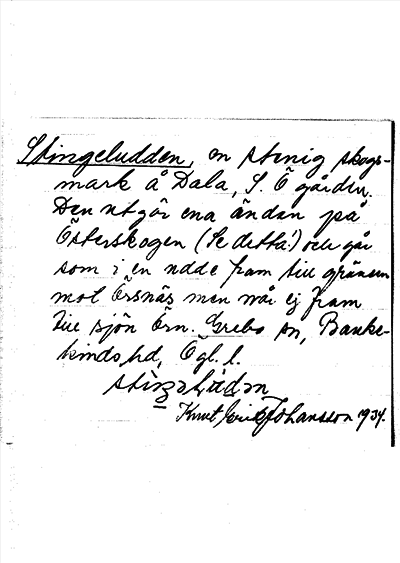 Stingeludden, en stenig skogs-
mark å Dala, S. Ö gården.
Den utgör ena änden på
Österskogen (Se detta!) och går
som i en udde fram till gränsen
mot Örsnäs men når ej fram
till sjön Örn. Grebo sn, Banke-
kinds hd, Ögl. l.
Knut Eric Johansson 1934.